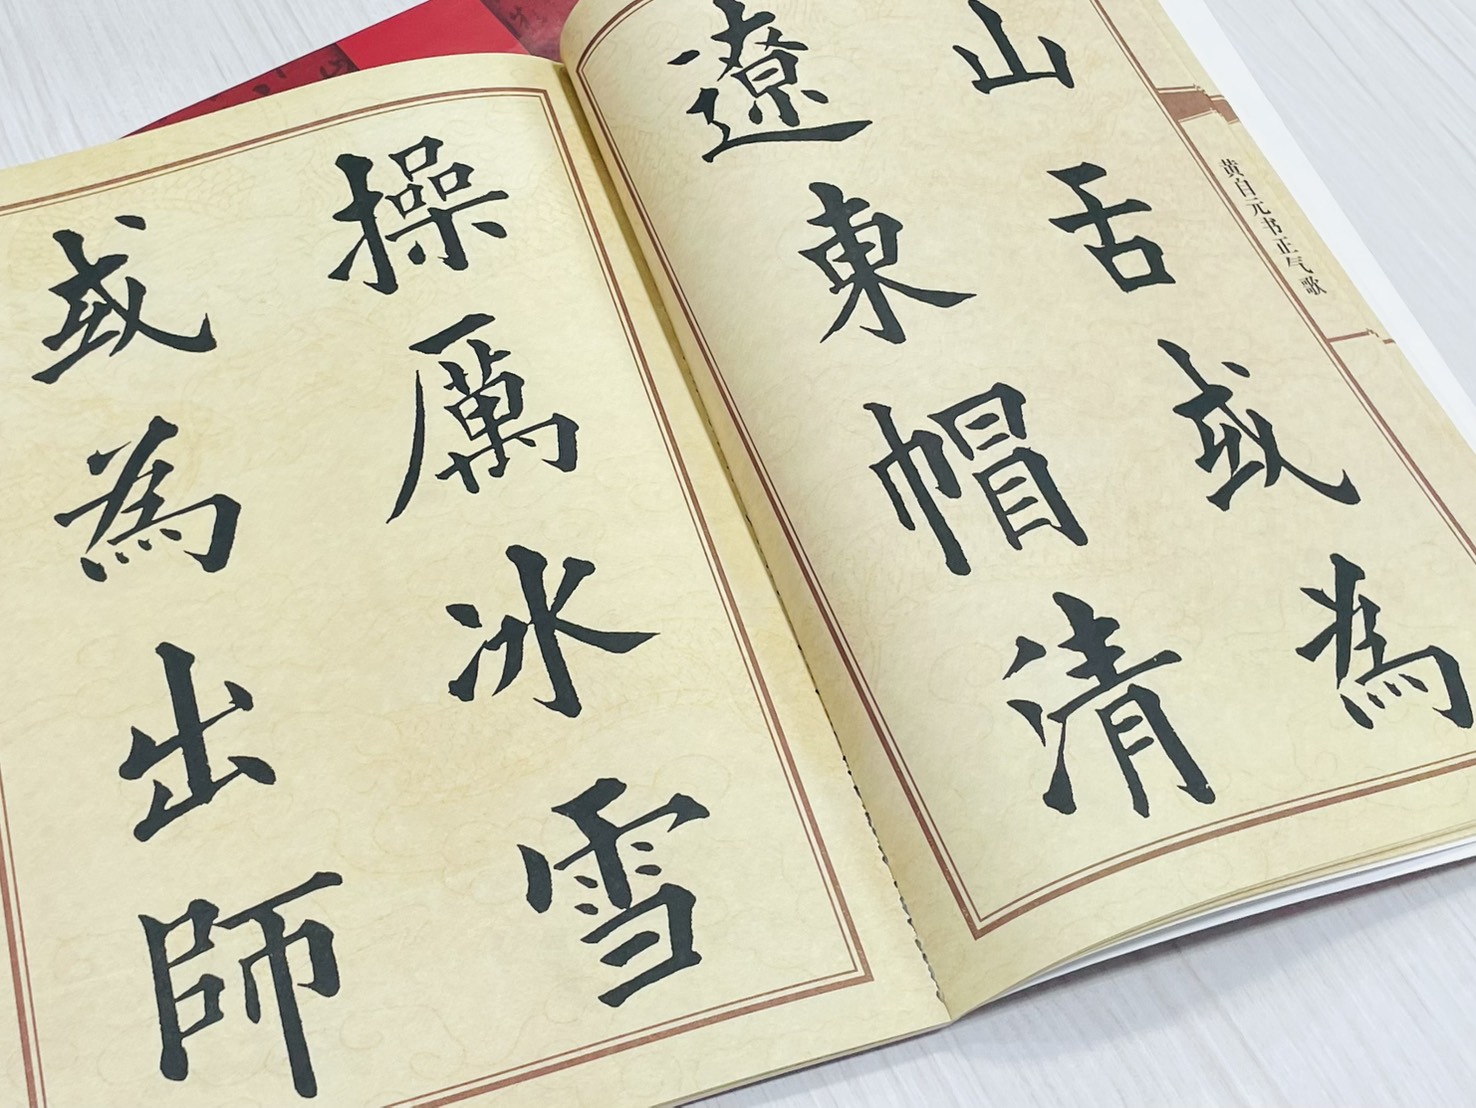 黄自元书正气歌
山舌或為
遼東帽清
操厲冰雪
或為出師